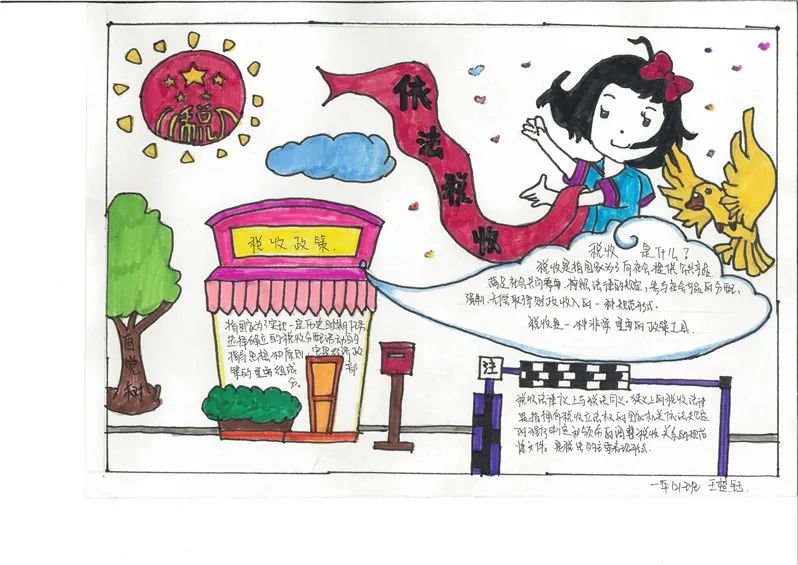 税
依法税收
税收政策
税收 是什么?
税收是指国家为了向社会提供公共产品
满足社会共同需要,按照法律的规定,参与社会产品的分配、
强制、无偿取得财政收入的一种规范形式。
税收是一种非常重要的政策工具。
指国家为了实现一定历史时期任务,
选择确立的税收分配活动的
指导思想和原则,它是经济政
策的重要组成部
分。
自觉树
注
税收法律仪上与税法同义,狭义上的税收法律
是指拥有税收立法权的国家机关依法规定
的程序制定和颁布的调整税收关系的规范
性文件。是税法的主要表现形式。